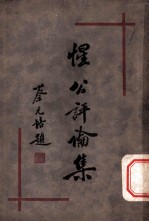 惺公評論集
蔡元培題